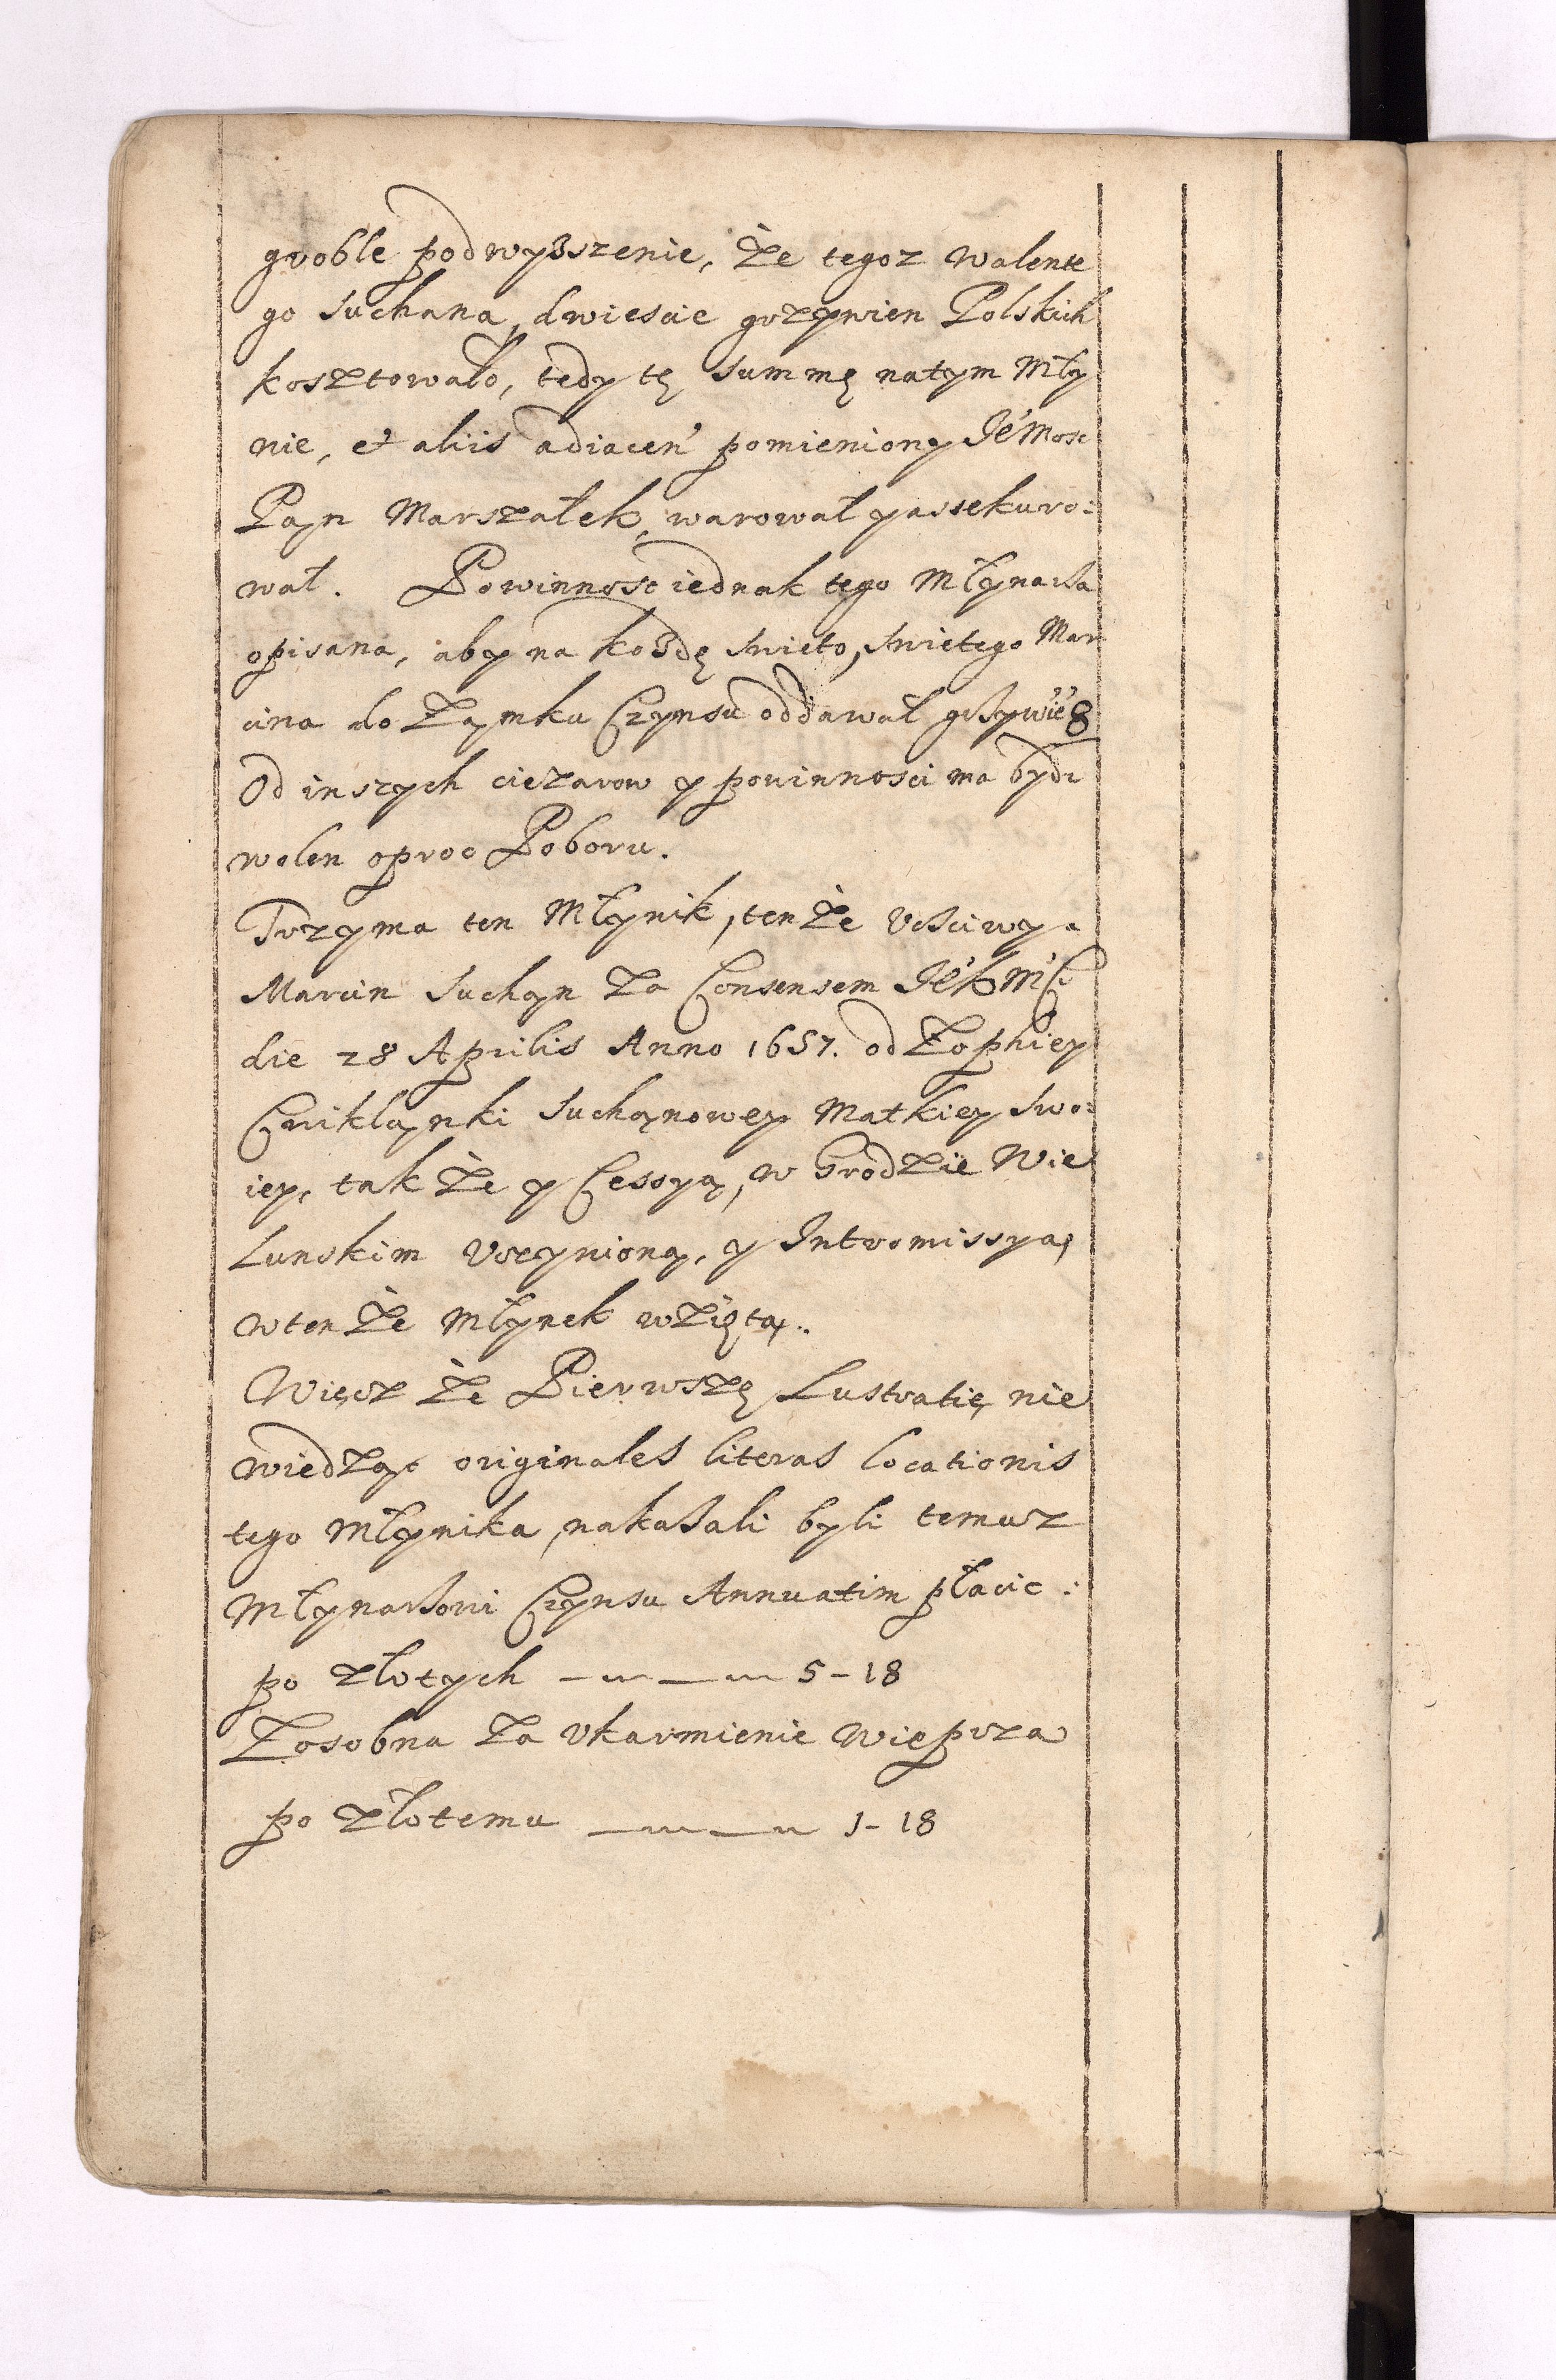 groble podwyższenie, że tegoz Walente
go Suchana, dwiescie grzywien Polskich
kosztowało, tedy tę summę natym Mły
nie, et aliis adiacen' pomieniony Je'Mosc
Pąn Marszałek, warował y assekuro:
wał. Powinnosc iednak tego Młynarza
opisana, aby na każdę Swieto, Swietego Mar
cina do Zamku Czynsu oddawał grzywie' 8
Od inszych ciezarow y powinnosci ma bydz
wolen oproc Poboru.
Trzyma ten Młynik, tenże Vcsciwy
Marcin Suchąn za Consensem
die 28 Aprilis Anno 1657. od Zophiey
Cwikląnki Suchąnowey Matkiey Swo:
iey, także y Cessyą, w Grodzie Wie
Lunskim Vczynioną, y Intromissyą,
wtenże Młynek wziętą.
Więcz że Pierwszę Lustratię, nie
wiedząc originales literas locationis
tego Młynika, nakazali byli temuz
Młynarzowi Czynsu Annuatim płacic:
po złotych 5-18
Zosobna za vkarmienie Wieprza
po złotemu 1-18